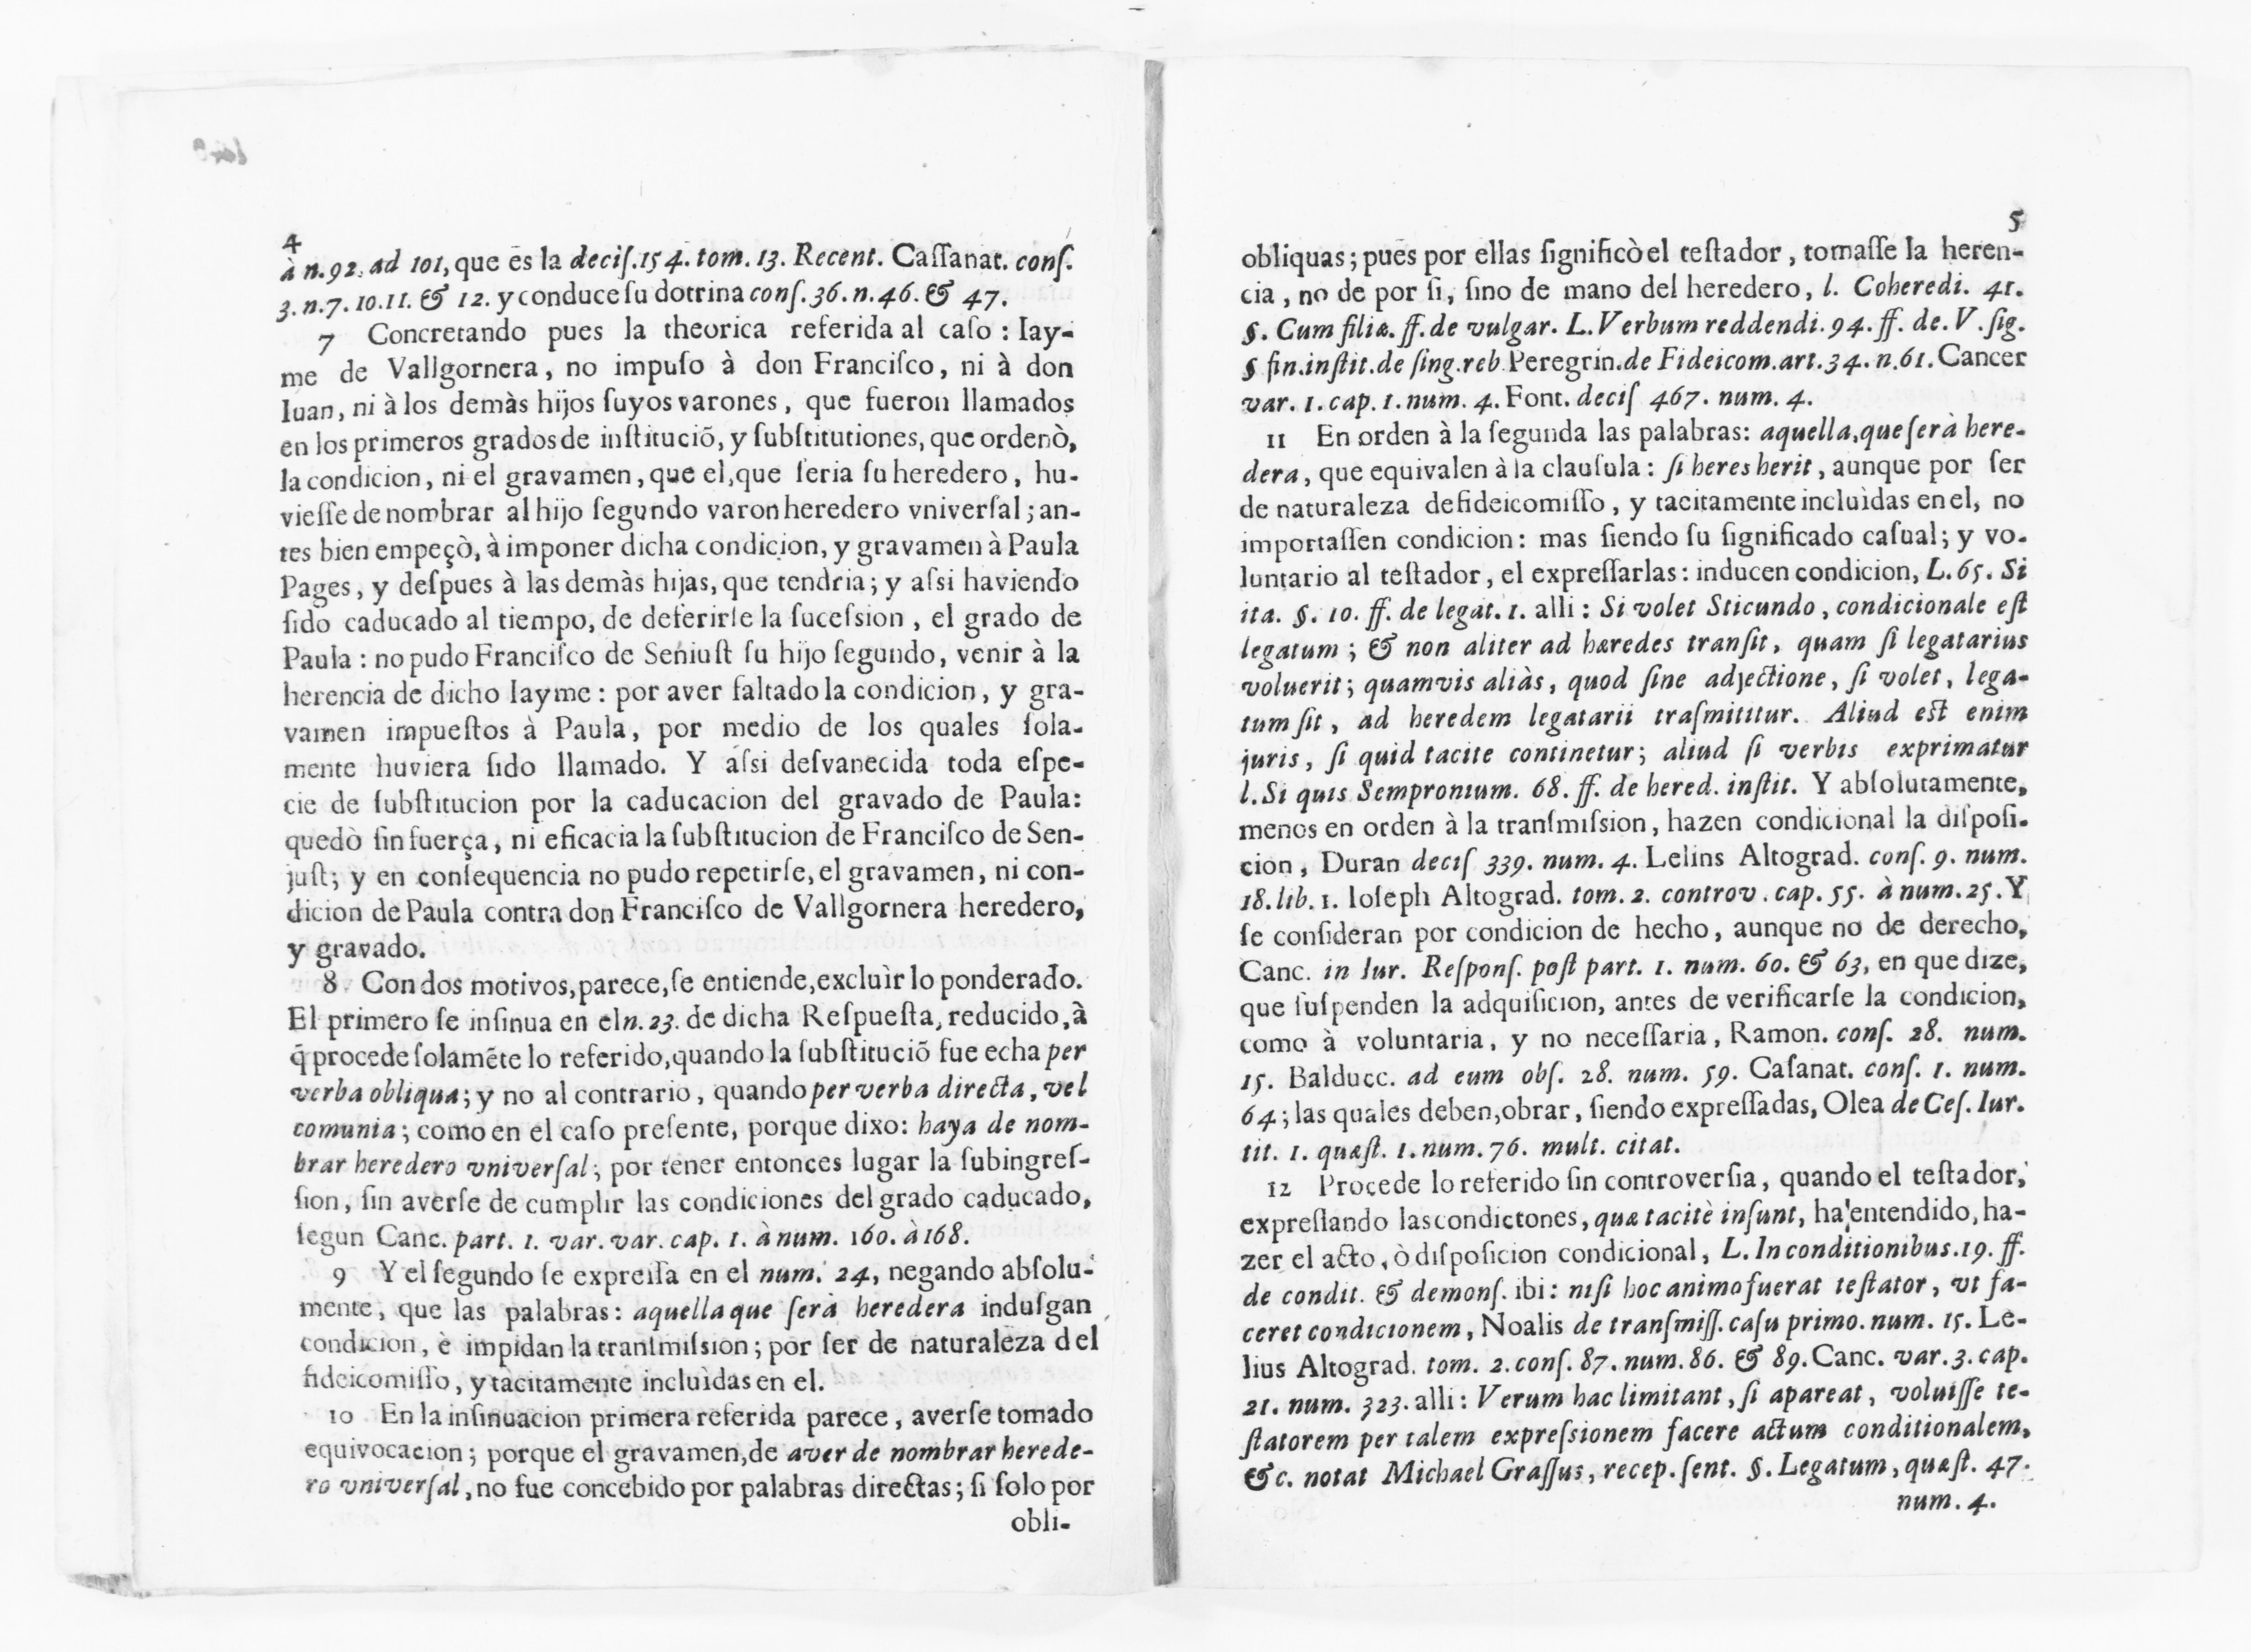 4
à n.92. ad 101, que es la deciſ.154. tom. 13. Recent. Caſſanat. conſ.
3. n.7. 10.11. & 12. y conduce ſu dotrina conſ. 36. n. 46. & 47.
7 Concretando pues la theorica referida al caſo : Iay-
me de Vallgornera, no impuſo à don Franciſco, ni à don
Iuan, ni à los demàs hijos ſuyos varones, que fueron llamados
en los primeros grados de inſtituciõ, y ſubſtitutiones, que ordenò,
la condicion, ni el gravamen, que el, que ſeria ſu heredero, hu-
vieſſe de nombrar al hijo ſegundo varon heredero vniverſal; an-
tes bien empeçò, à imponer dicha condicion, y gravamen à Paula
Pages, y deſpues à las demàs hijas, que tendria; y aſsi haviendo
ſido caducado al tiempo, de deferirle la ſuceſsion, el grado de
Paula : no pudo Franciſco de Seniuſt ſu hijo ſegundo, venir à la
herencia de dicho Iayme : por aver faltado la condicion, y gra-
vamen impueſtos à Paula, por medio de los quales ſola-
mente huviera ſido llamado. Y aſsi deſvanecida toda eſpe-
cie de ſubſtitucion por la caducacion del gravado de Paula:
quedò ſin fuerça, ni eficacia la ſubſtitucion de Franciſco de Sen-
juſt; y en conſequencia no pudo repetirſe, el gravamen, ni con-
dicion de Paula contra don Franciſco de Vallgornera heredero,
y gravado.
8 Con dos motivos, parece, ſe entiende, excluìr lo ponderado.
El primero ſe inſinua en el n. 23. de dicha Reſpueſta, reducido, à
q̃ procede ſolamẽte lo referido, quando la ſubſtituciõ fue echa per
verba obliqua; y no al contrario, quando per verba directa, vel
comunia; como en el caſo preſente, porque dixo: haya de nom-
brar heredero vniverſal; por tener entonces lugar la ſubingreſ-
ſion, ſin averſe de cumplir las condiciones del grado caducado,
ſegun Canc. part. 1. var. var. cap. 1. à num. 160. à 168.
9 Y el ſegundo ſe expreſſa en el num. 24, negando abſolu-
mente, que las palabras: aquella que ſerà heredera induſgan
condicion, è impidan la tranſmiſsion; por ſer de naturaleza del
fideicomiſſo, y tacitamente incluìdas en el.
10 En la inſinuacion primera referida parece, averſe tomado
equivocacion; porque el gravamen, de aver de nombrar herede-
ro vniverſal, no fue concebido por palabras directas; ſi ſolo por
obli-
5
obliquas; pues por ellas ſignificò el teſtador, tomaſſe la heren-
cia, no de por ſi, ſino de mano del heredero, l. Coheredi. 41.
§. Cum filiæ. ff. de vulgar. L. Verbum reddendi. 94. ff. de. V. ſig.
§ fin. inſtit. de ſing. reb. Peregrin. de Fideicom. art. 34. n. 61. Cancer
var. 1. cap. 1. num. 4. Font. deciſ 467. num. 4.
11 En orden à la ſegunda las palabras: aquella, que ſerà here-
dera, que equivalen à la clauſula: ſi heres herit, aunque por ſer
de naturaleza de fideicomiſſo, y tacitamente incluìdas en el, no
importaſſen condicion: mas ſiendo ſu ſignificado caſual; y vo-
luntario al teſtador, el expreſſarlas: inducen condicion, L. 65. Si
ita. §. 10. ff. de legat. 1. alli: Si volet Sticundo, condicionale eſt
legatum; & non aliter ad hæredes tranſit, quam ſi legatarius
voluerit; quamvis aliàs, quod ſine adjectione, ſi volet, lega-
tum ſit, ad heredem legatarii traſmititur. Aliud eſt enim
juris, ſi quid tacite continetur; aliud ſi verbis exprimatur
l. Si quis Sempronium. 68. ff. de hered. inſtit. Y abſolutamente,
menos en orden à la tranſmiſsion, hazen condicional la diſpoſi-
cion, Duran deciſ 339. num. 4. Lelins Altograd. conſ. 9. num.
18. lib. 1. Ioſeph Altograd. tom. 2. controv. cap. 55. à num. 25. Y
ſe conſideran por condicion de hecho, aunque no de derecho,
Canc. in Iur. Reſponſ. poſt part. 1. num. 60. & 63, en que dize,
que ſuſpenden la adquiſicion, antes de verificarſe la condicion,
como à voluntaria, y no neceſſaria, Ramon. conſ. 28. num.
15. Balducc. ad eum obſ. 28. num. 59. Caſanat. conſ. 1. num.
64; las quales deben, obrar, ſiendo expreſſadas, Olea de Ceſ. Iur.
tit. 1. quæſt. 1. num. 76. mult. citat.
12 Procede lo referido ſin controverſia, quando el teſtador,
expreſſando las condictones, quæ tacitè inſunt, ha entendido, ha-
zer el acto, ò diſpoſicion condicional, L. In conditionibus. 19. ff.
de condit. & demonſ. ibi: niſi hoc animo fuerat teſtator, vt fa-
ceret condicionem, Noalis de tranſmiſſ. caſu primo. num. 15. Le-
lius Altograd. tom. 2. conſ. 87. num. 86. & 89. Canc. var. 3. cap.
21. num. 323. alli: Verum hac limitant, ſi apareat, voluiſſe te-
ſtatorem per talem expreſsionem facere actum conditionalem,
&c. notat Michael Graſſus, recep. ſent. §. Legatum, quæſt. 47.
num. 4.